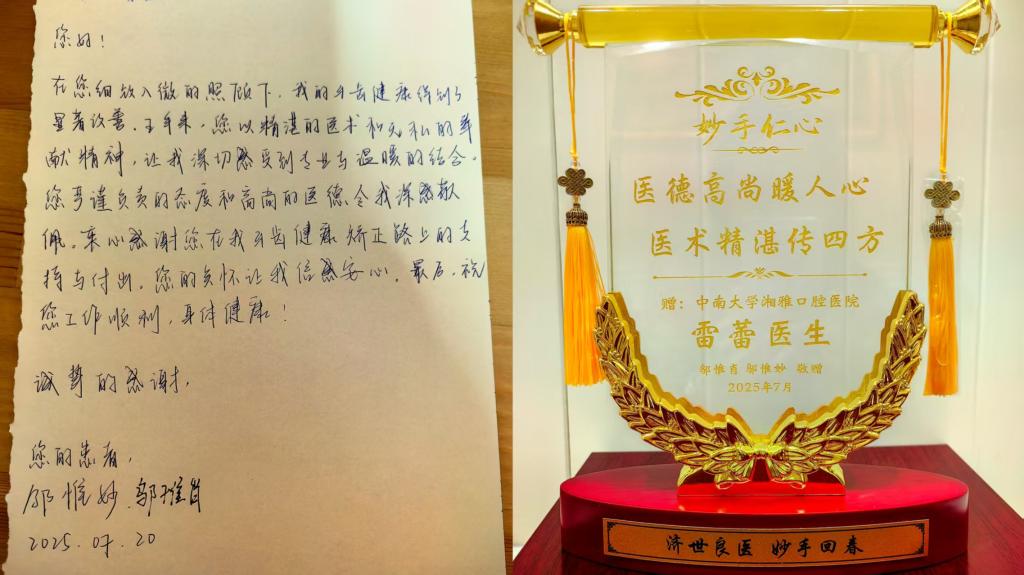 您好！
在您细致入微的照顾下，我的牙齿健康得到了
显著改善。三年来，您以精湛的医术和无私的奉
献精神，让我深切感受到专业与温暖的结合。
您严谨负责的态度和高尚的医德令我深感敬
佩。衷心感谢您在我牙齿健康矫正路上的支
持与付出，您的关怀让我倍感安心。最后，祝
您工作顺利，身体健康！
诚挚的感谢，
您的患者，
邬惟妙、邬惟肖
2025.07.20
妙手仁心
医德高尚暖人心
医术精湛传四方
赠：中南大学湘雅口腔医院
雷蕾医生
邬惟肖 邬惟妙 敬赠
2025年7月
济世良医 妙手回春